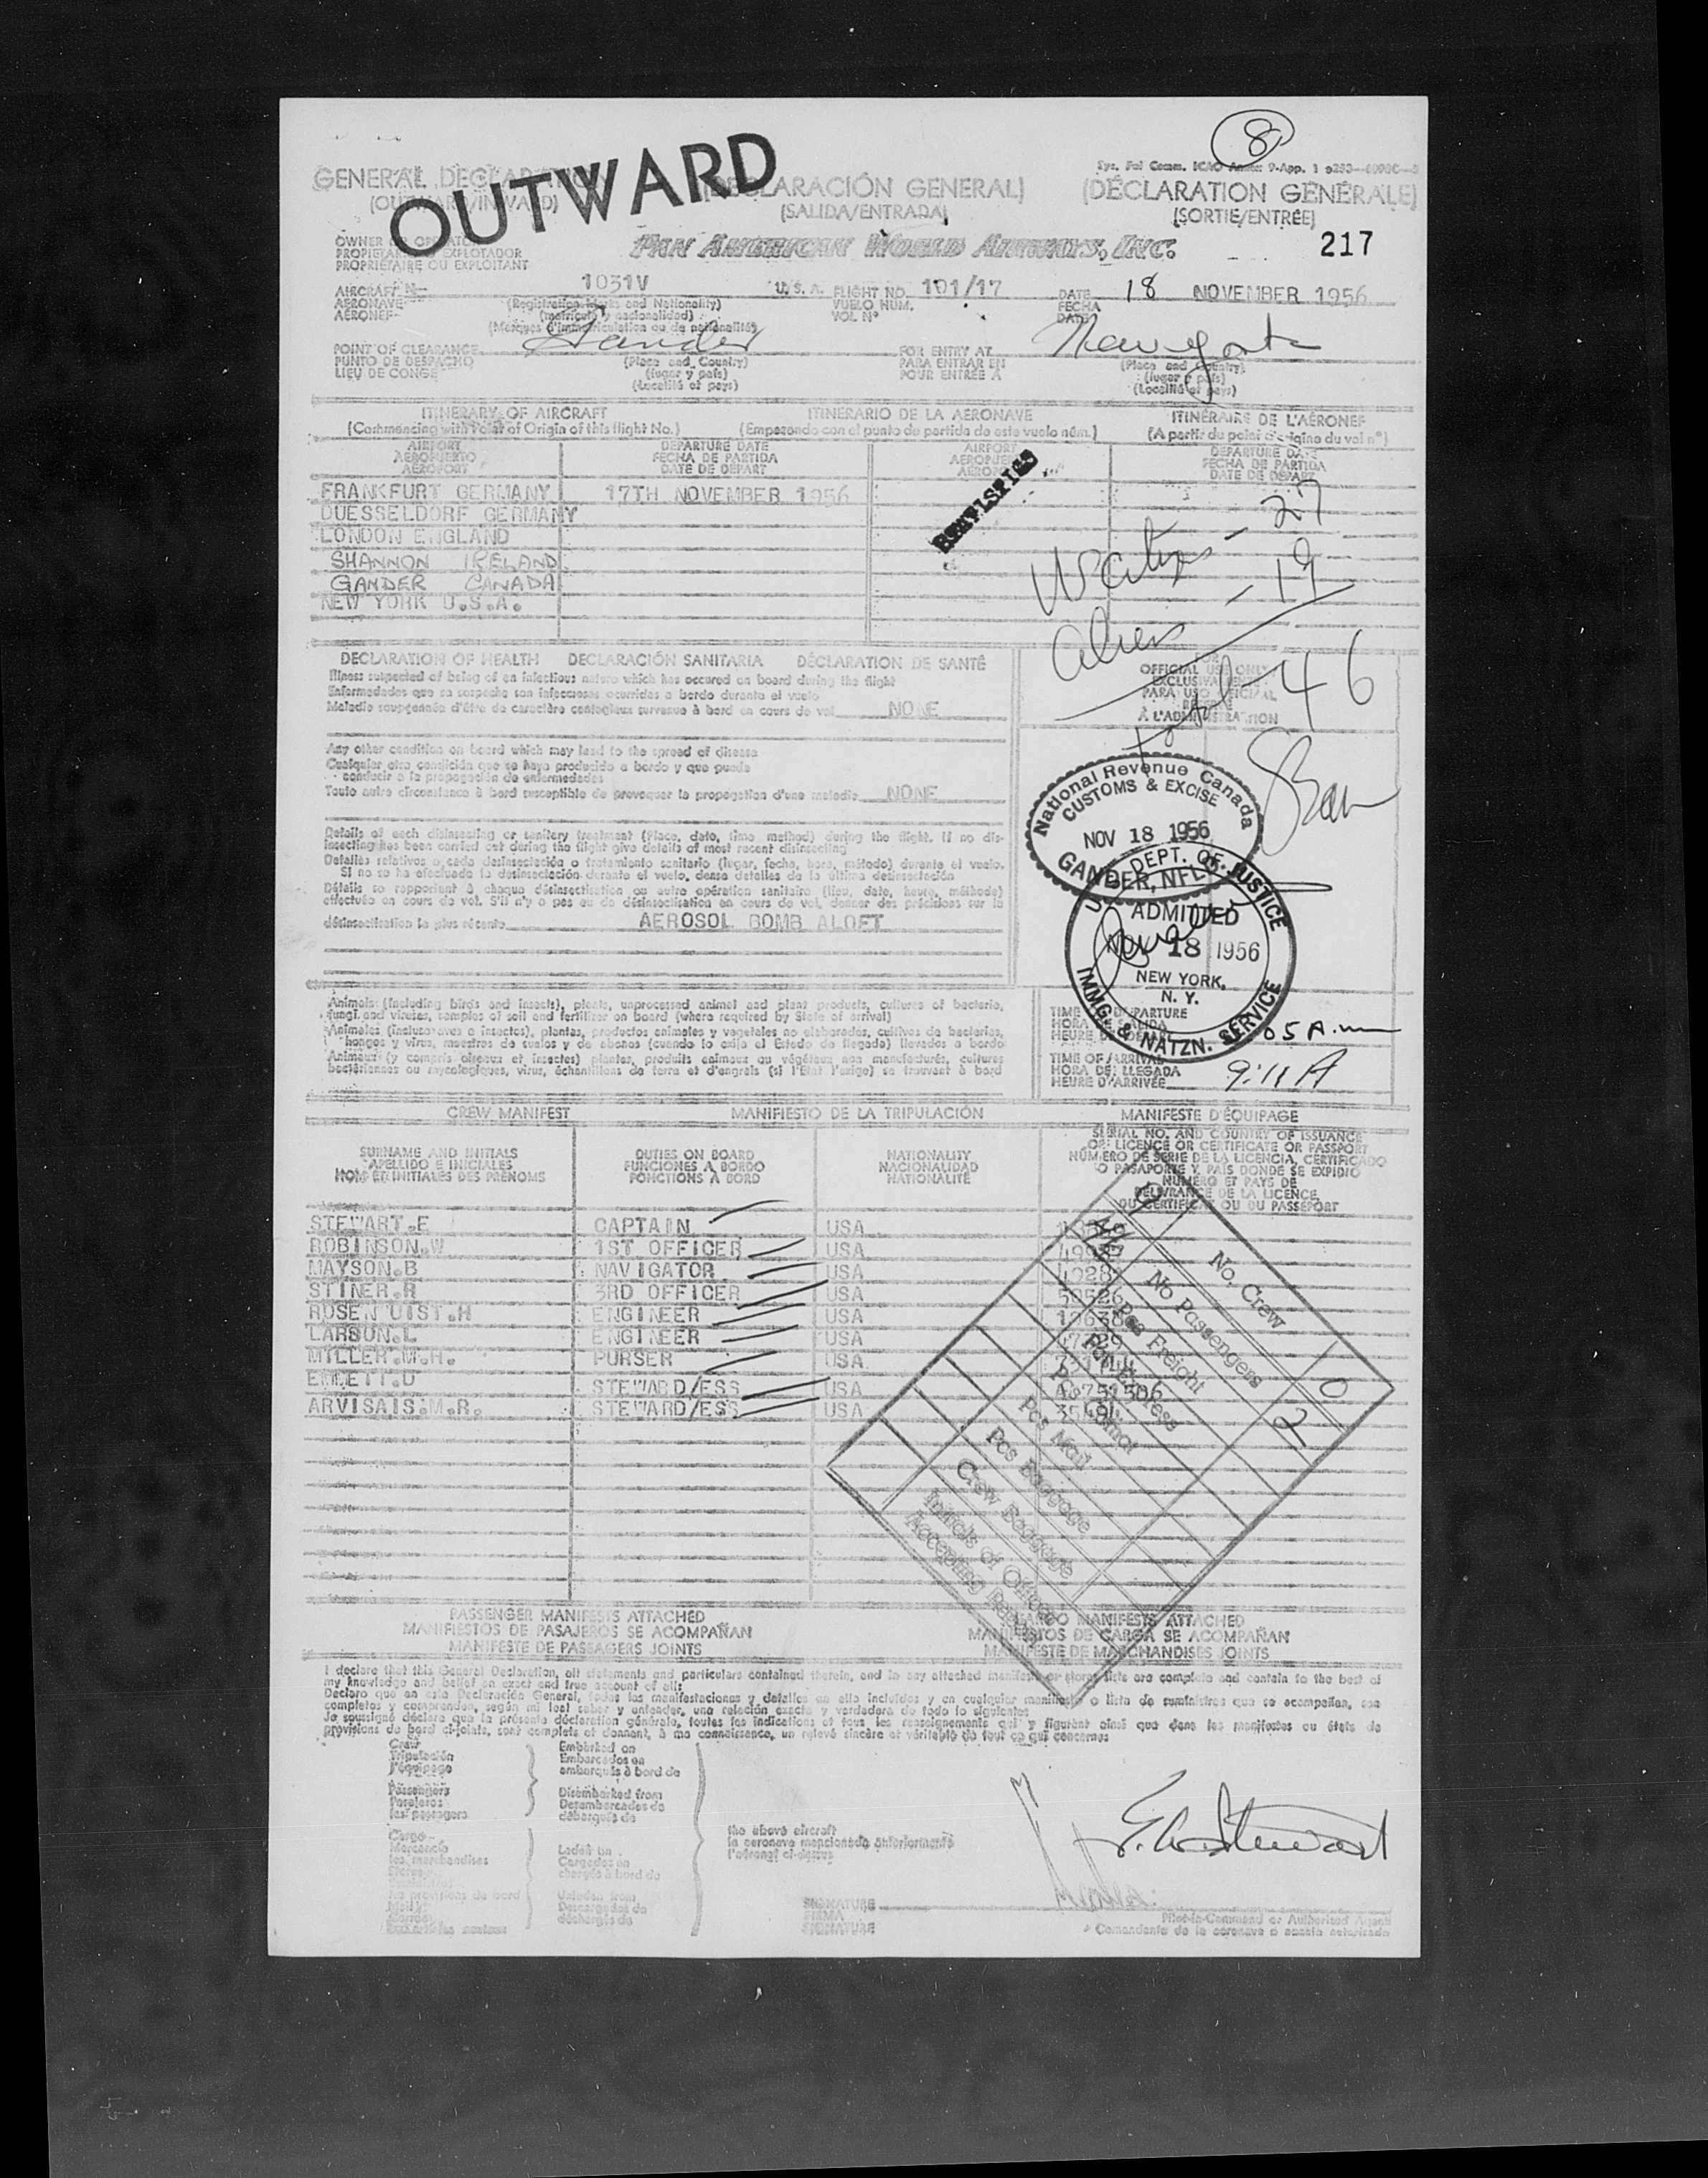 8
Sys. Fol Comm. ICAO Annex 9-App. 1
OUTWARD
GENERAL DECLARATION (DECLARACIÓN GENERAL) (DÉCLARATION GÉNÉRALE)
(OUTWARD/INWARD) (SALIDA/ENTRADA) (SORTIE/ENTRÉE)
OWNER OR OPERATOR
PROPIETARIO O EXPLOTADOR
PROPRIÉTAIRE OU EXPLOITANT
PAN AMERICAN WORLD AIRWAYS, INC.
217
AIRCRAFT N 1031V U.S.A. FLIGHT NO. 101/17 DATE 18 NOVEMBER 1956
AERONAVE (Registration Marks and Nationality) VUELO NUM. FECHA
AÉRONEF (matrícula y nacionalidad) VOL Nº DATE
(Marques d'immatriculation ou de nationalité)
POINT OF CLEARANCE Gander FOR ENTRY AT New York
PUNTO DE DESPACHO (Place and Country) PARA ENTRAR EN (Place and Country)
LIEU DE CONGE (lugar y país) POUR ENTRÉE A (lugar y país)
(Localité et pays) (Localité et pays)
ITINERARY OF AIRCRAFT ITINERARIO DE LA AERONAVE ITINÉRAIRE DE L'AÉRONEF
(Commencing with Point of Origin of this flight No.) (Empezando con el punto de partida de este vuelo núm.) (A partir du point d'origine du vol nº)
AIRPORT DEPARTURE DATE AIRPORT DEPARTURE DATE
AEROPUERTO FECHA DE PARTIDA AEROPUERTO FECHA DE PARTIDA
AÉROPORT DATE DE DÉPART DATE DE DÉPART
FRANKFURT GERMANY 17TH NOVEMBER 1956
DUESSELDORF GERMANY
LONDON ENGLAND
SHANNON IRELAND
GANDER CANADA
NEW YORK U.S.A.
US Citizens - 27
Aliens - 19
Total 46
DECLARATION OF HEALTH DECLARACIÓN SANITARIA DÉCLARATION DE SANTÉ
Illness suspected of being of an infectious nature which has occured on board during the flight
Enfermedades que se sospecha son infecciosas ocurridas a bordo durante el vuelo
Maladie soupçonnée d'être de caractère contagieux survenue à bord en cours de vol NONE
FOR
OFFICIAL USE ONLY
EXCLUSIVAMENTE
PARA USO OFICIAL
RÉSERVÉ
À L'ADMINISTRATION
Any other condition on board which may lead to the spread of disease
Cualquier otra condición que se haya producido a bordo y que pueda
conducir a la propagación de enfermedades
Toute autre circonstance à bord susceptible de provoquer la propagation d'une maladie NONE
National Revenue Canada
CUSTOMS & EXCISE
NOV 18 1956
GANDER, NFLD.
Details of each disinsecting or sanitary treatment (Place, date, time method) during the flight. If no dis-
insecting has been carried out during the flight give details of most recent disinsecting
Detalles relativos a cada desinsectación o tratamiento sanitario (lugar, fecha, hora, método) durante el vuelo.
Si no se ha efectuado la desinsectación durante el vuelo, dense detalles de la última desinsectación
Détails se rapportant à chaque désinsectisation ou autre opération sanitaire (lieu, date, heure, méthode)
effectuée en cours de vol. S'il n'y a pas eu de désinsectisation en cours de vol, donner des précisions sur la
désinsectisation la plus récente AEROSOL BOMB ALOFT
U.S. DEPT. OF JUSTICE
ADMITTED
NOV 18 1956
NEW YORK,
N. Y.
IMMG. & NATZN. SERVICE
Animals (including birds and insects), plants, unprocessed animal and plant products, cultures of bacteria,
fungi and viruses, samples of soil and fertilizer on board (where required by State of arrival)
Animales (incluso aves e insectos), plantas, productos animales y vegetales no elaborados, cultivos de bacterias,
hongos y virus, muestras de suelos y de abonos (cuando lo exija el Estado de llegada) llevados a bordo
Animaux (y compris oiseaux et insectes) plantes, produits animaux ou végétaux non manufacturés, cultures
bactériennes ou mycologiques, virus, échantillons de terre et d'engrais (si l'État l'exige) se trouvant à bord
TIME OF DEPARTURE
HORA DE SALIDA
HEURE DE DÉPART 05 A.m
TIME OF ARRIVAL
HORA DE LLEGADA
HEURE D'ARRIVÉE 9:11 A
CREW MANIFEST MANIFIESTO DE LA TRIPULACIÓN MANIFESTE D'ÉQUIPAGE
SURNAME AND INITIALS DUTIES ON BOARD NATIONALITY SERIAL NO. AND COUNTRY OF ISSUANCE
APELLIDO E INICIALES FUNCIONES A BORDO NACIONALIDAD OF LICENCE OR CERTIFICATE OR PASSPORT
NOM ET INITIALES DES PRÉNOMS FONCTIONS À BORD NATIONALITÉ NÚMERO DE SERIE DE LA LICENCIA, CERTIFICADO
O PASAPORTE Y PAÍS DONDE SE EXPIDIÓ
NUMÉRO ET PAYS DE
DÉLIVRANCE DE LA LICENCE
OU CERTIFICAT OU DU PASSEPORT
STEWART.E CAPTAIN USA
ROBINSON.W 1ST OFFICER USA
MAYSON.B NAVIGATOR USA
STINER.R 3RD OFFICER USA 50526
ROSENQUIST.H ENGINEER USA
LARSON.L ENGINEER USA
MILLER.M.H. PURSER USA
EMMETT.D STEWARD/ESS USA
ARVISAIS.M.R. STEWARD/ESS USA
No. Crew 0
No Passengers 2
Pcs Freight
Pcs Express
Pcs Comat
Pcs Mail
Pcs Baggage
Crew Baggage
Initials of Officer
PASSENGER MANIFESTS ATTACHED CARGO MANIFESTS ATTACHED
MANIFIESTOS DE PASAJEROS SE ACOMPAÑAN MANIFIESTOS DE CARGA SE ACOMPAÑAN
MANIFESTE DE PASSAGERS JOINTS MANIFESTE DE MARCHANDISES JOINTS
I declare that this General Declaration, all statements and particulars contained therein, and in any attached manifests or stores lists are complete and contain to the best of
my knowledge and belief an exact and true account of all:
Declaro que en esta Declaración General, todas las manifestaciones y detalles en ella incluidos y en cualquier manifiesto o lista de suministros que se acompañan, son
completos y comprenden, según mi leal saber y entender, una relación exacta y verdadera de todo lo siguiente:
Je soussigné déclare que la présente déclaration générale, toutes les indications et tous les renseignements qui y figurent ainsi que dans les manifestes ou états de
provisions de bord ci-joints, sont complets et donnent, à ma connaissance, un relevé sincère et véritable de tout ce qui concerne:
Crew Embarked on
Tripulación Embarcados en
l'équipage embarqués à bord de
Passengers Disembarked from
Pasajeros Desembarcados de
les passagers débarqués de
Cargo
Mercancía Laden on
les marchandises Cargados en
chargés à bord de
les provisions de bord Unladen from
Descargados de
déchargés de
the above aircraft
la aeronave mencionada anteriormente
l'aéronef ci-dessus
E. Stewart
SIGNATURE
FIRMA
SIGNATURE
Pilot-in-Command or Authorized Agent
Comandante de la aeronave o agente autorizado